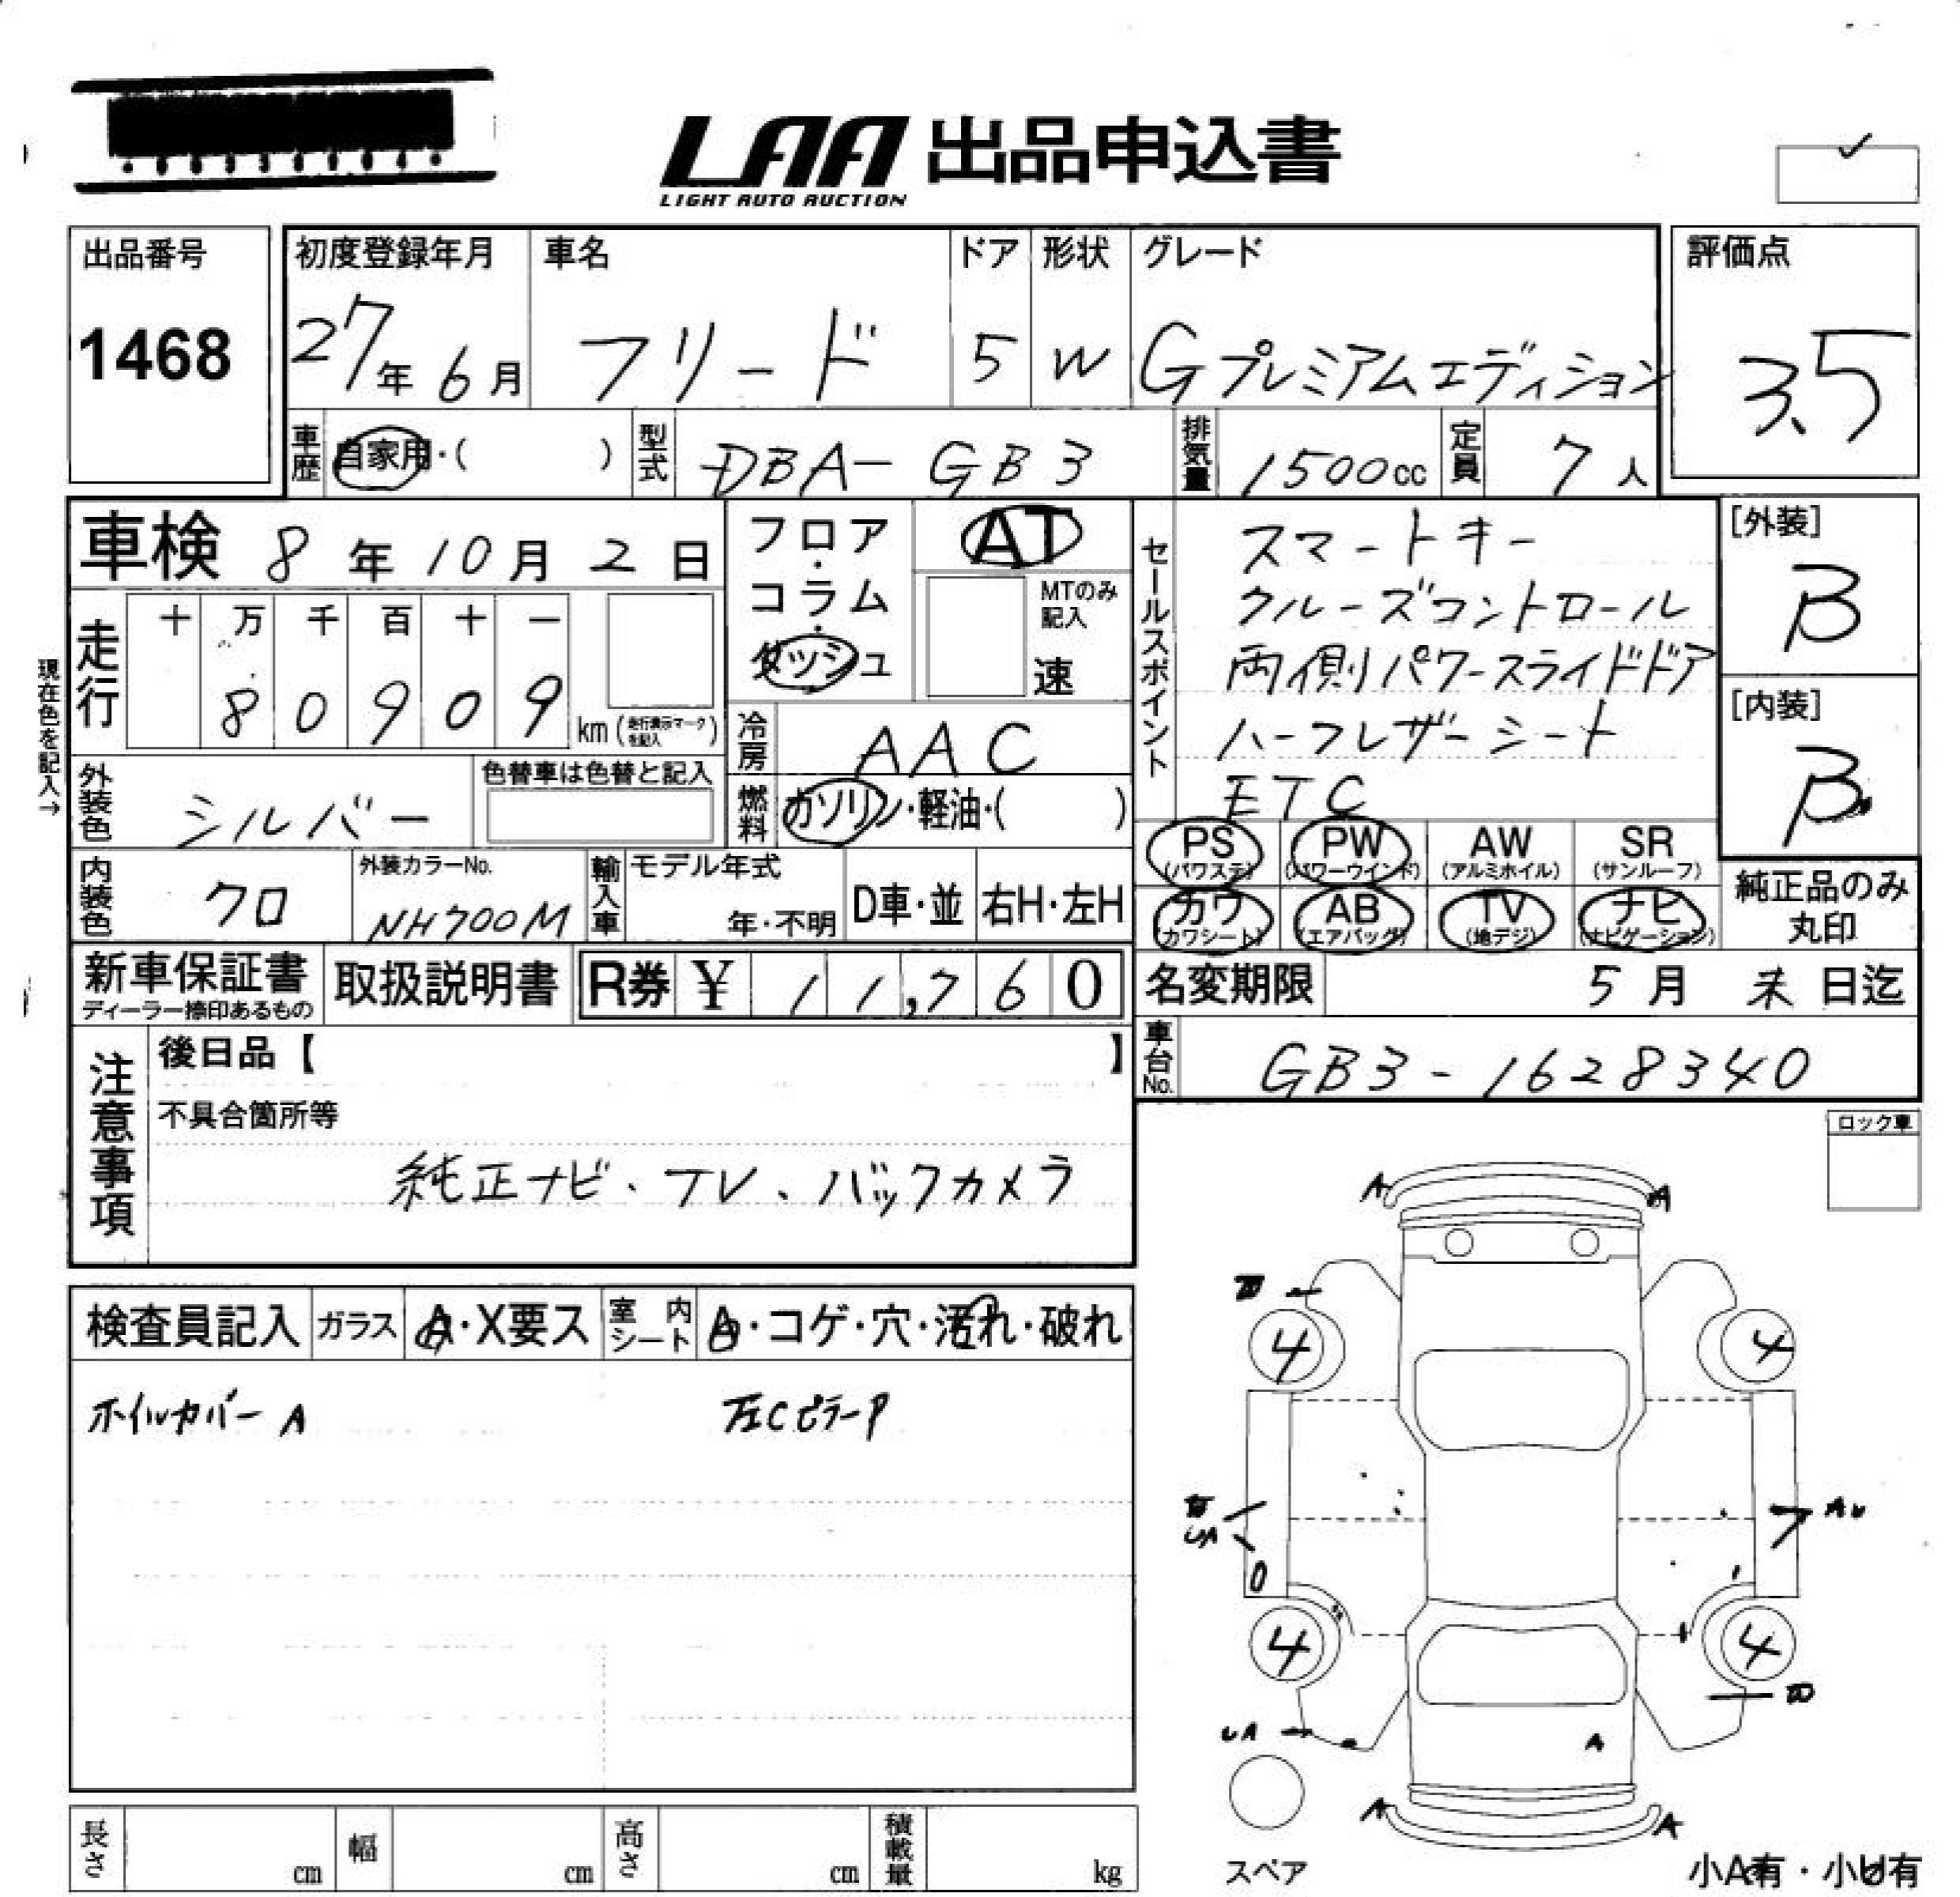 LAA 出品申込書
LIGHT AUTO AUCTION
出品番号
1468
初度登録年月
27年 6月
車名
フリード
ドア
5
形状
W
グレード
Gプレミアムエディション
評価点
3.5
車歴
自家用・( )
型式
DBA-GB3
排気量
1500cc
定員
7人
車検 8年10月2日
現在色を記入→
走行
十 万 千 百 十 一
8 0 9 0 9
km(走行表示マークを記入)
フロア・コラム・ダッシュ
AT
MTのみ記入
速
冷房
AAC
燃料
ガソリン・軽油・( )
外装色
シルバー
色替車は色替と記入
内装色
クロ
外装カラーNo.
NH700M
輸入車
モデル年式
年・不明
D車・並
右H・左H
セールスポイント
スマートキー
クルーズコントロール
両側パワースライドドア
ハーフレザーシート
ETC
[外装]
B
[内装]
B
PS (パワステ)
PW (パワーウインド)
AW (アルミホイル)
SR (サンルーフ)
カワ (カワシート)
AB (エアバッグ)
TV (地デジ)
ナビ (ナビゲーション)
純正品のみ
丸印
新車保証書
ディーラー捺印あるもの
取扱説明書
R券 ¥ 11,760
名変期限
5月末日迄
車台No.
GB3-1628340
注意事項
後日品【 】
不具合箇所等
純正ナビ、TV、バックカメラ
ロック車
検査員記入
ガラス
A・X要ス
室内シート
A・コゲ・穴・汚れ・破れ
ホイルカバーA
左CピラーP
A A
4 4
4 4
UA
A
UA
A A
スペア
小A有・小U有
長さ cm
幅 cm
高さ cm
積載量 kg